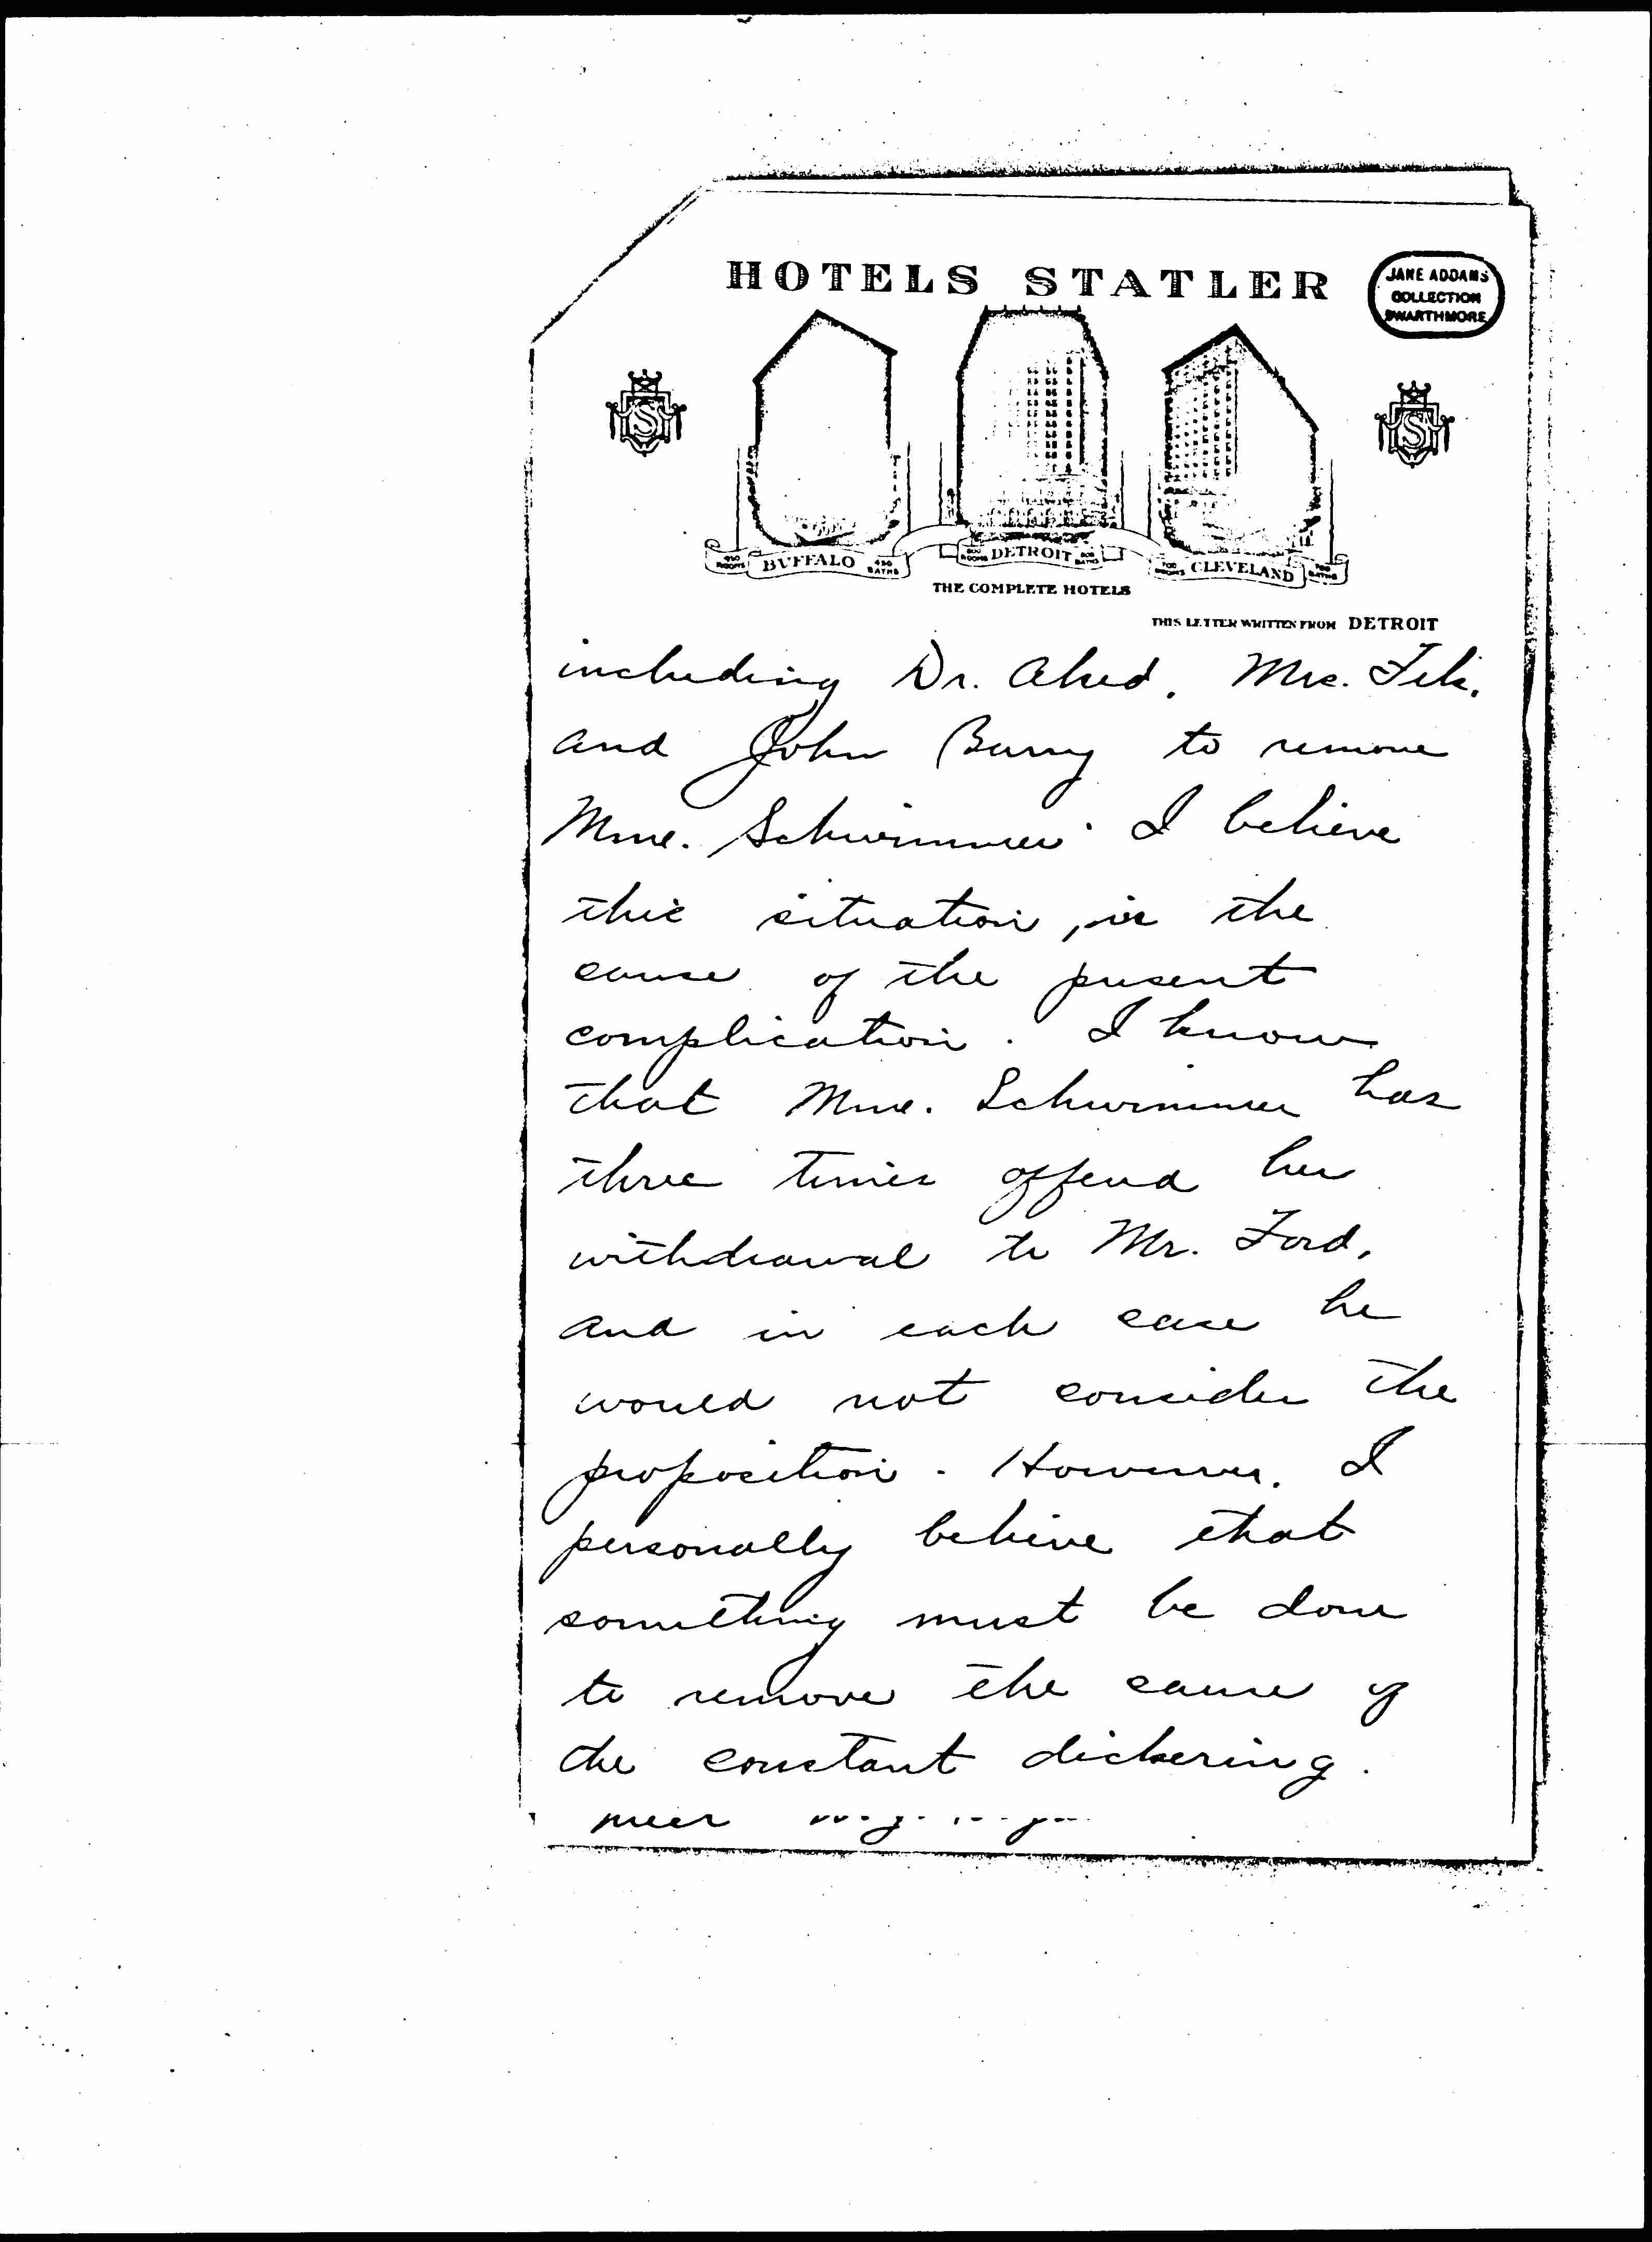 HOTELS STATLER
JANE ADDAMS
COLLECTION
SWARTHMORE
450 ROOMS BUFFALO 450 BATHS
800 ROOMS DETROIT 800 BATHS
700 ROOMS CLEVELAND 700 BATHS
THE COMPLETE HOTELS
THIS LETTER WRITTEN FROM DETROIT
including Dr. Aked, Mrs. Fels,
and John Barry to remove
Mme. Schwimmer. I believe
this situation, is the
cause of the present
complication. I know
that Mme. Schwimmer has
three times offered her
withdrawal to Mr. Ford,
and in each case he
would not consider the
proposition. However, I
personally believe that
something must be done
to remove the cause of
the constant dickering.